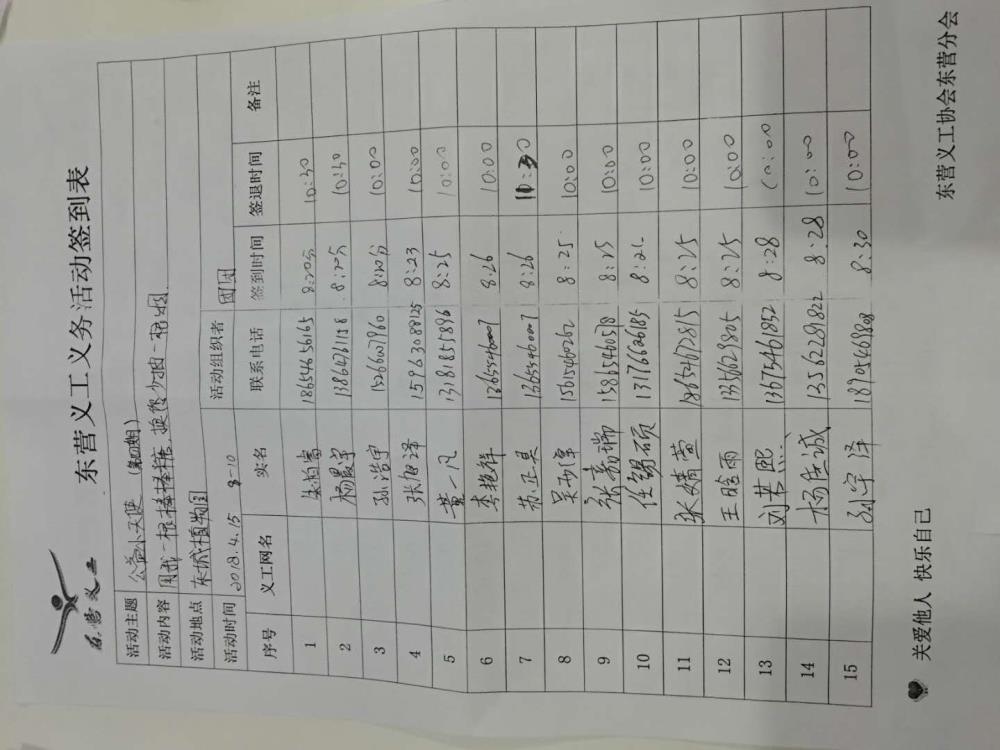 东营义工
东营义工义务活动签到表
活动主题 公益小天使 (第四期)
活动内容 用我一根棒棒糖,换您少抽一根烟
活动地点 东城植物园 活动组织者 团团
活动时间 2018.4.15 8-10
序号 义工网名 实名 联系电话 签到时间 签退时间 备注
1 18654656165 8:20分 10:30
2 杨震宇 13864781158 8:20分 10:30
3 孙浩宇 15266007960 8:20分 10:00
4 张旭泽 15963088125 8:23 10:00
5 黄一凡 13181855896 8:25 10:00
6 李艳祥 13655460007 8:26 10:00
7 苏正昊 13655460007 8:26 10:30
8 15615460262 8:25 10:00
9 张嘉瑞 15865460578 8:25 10:00
10 任锡硕 13176626185 8:26 10:00
11 张婧萱 18678672815 8:25 10:00
12 王晗雨 13356629805 8:25 10:00
13 刘若熙 13675461852 8:28 10:00
14 杨任诚 13562289822 8:28 10:00
15 孙宇泽 18905469808 8:30 10:00
关爱他人 快乐自己 东营义工协会东营分会